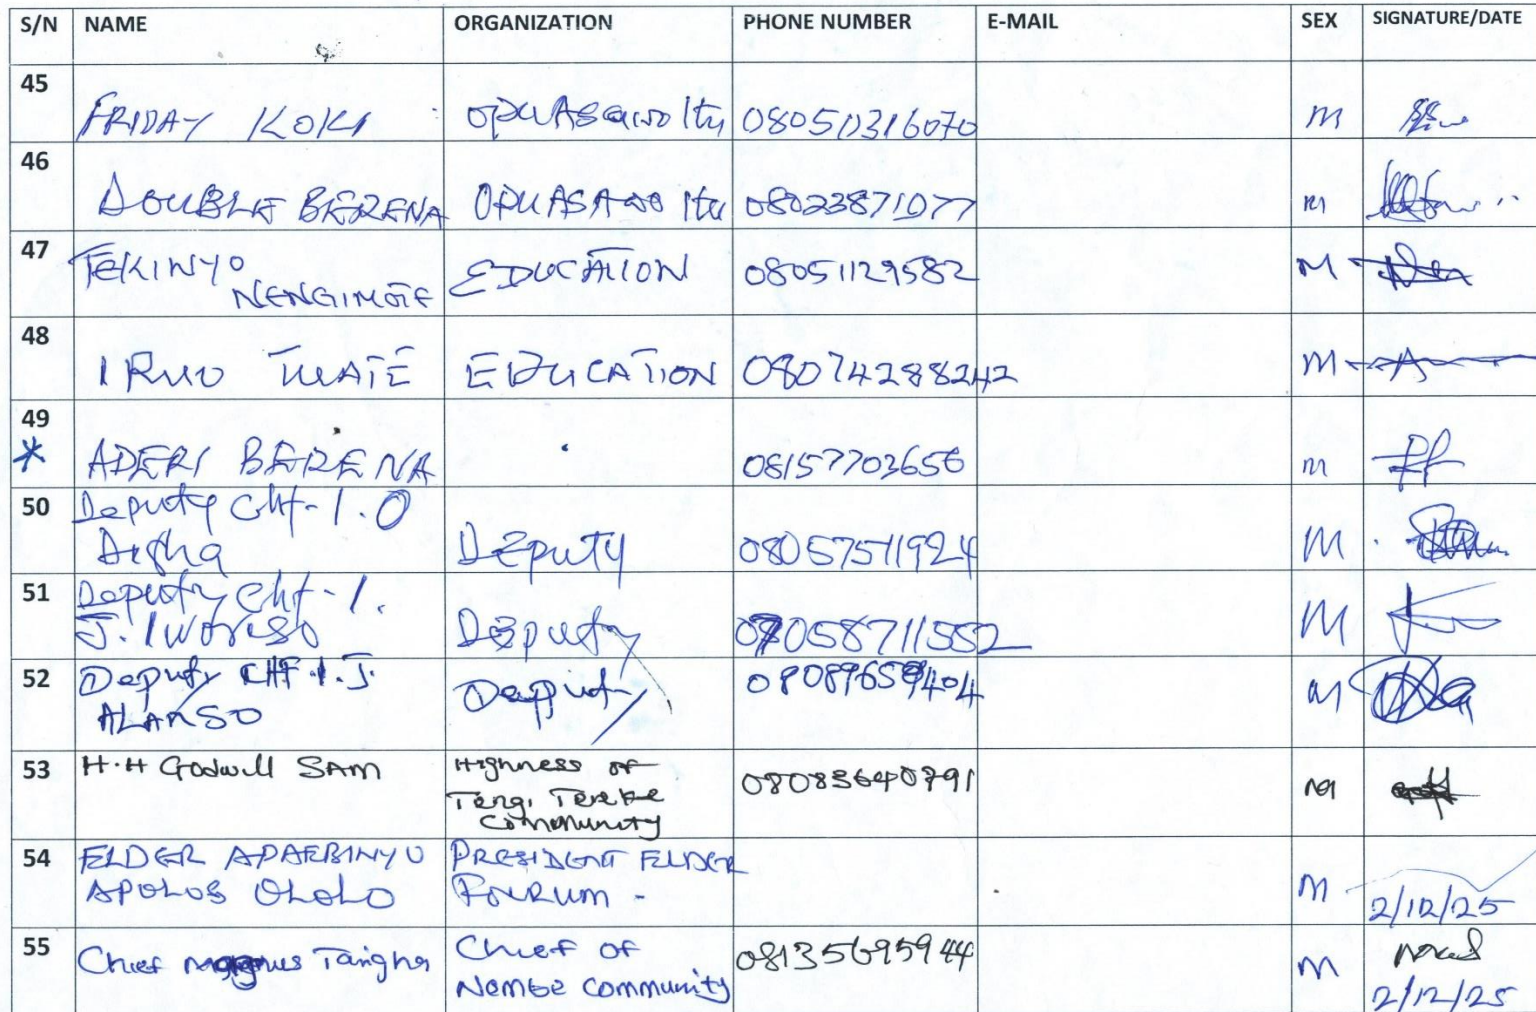 S/N NAME ORGANIZATION PHONE NUMBER E-MAIL SEX SIGNATURE/DATE
45 FRIDAY KOKI OPUASAWO Itu M
46 DOUBLE BERENA OPUASAWO Itu 08023871077 M
47 TEKINYO
NENGIMOTE EDUCATION 08051129582 M
48 IRUO TUATE EDUCATION 08074288242 M
49
* ADERI BERENA 08157703656 M
50 Deputy Chf-I.O
Deputy 08057511924 M
51 Deputy Chf-I.
J. Iworiso Deputy M
52 Deputy CHF.I.J.
ALANSO Deputy M
53 H.H Godwill SAM Highness of
Community
08083640791 M
54 ELDER APAEBINYO
APOLOS OLOLO PRESIDENT ELDER
FOURUM - M
2/12/25
55 Chief Magnus Chief of
Nembe Community
08135695944 M
2/12/25